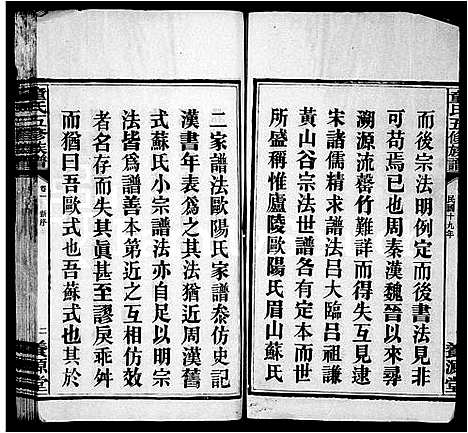 宗法明例定而後書法見非
可苟焉已也周秦漢魏晉以來參
溯源流罄竹難詳而得失互見逮
宋諸儒精求譜法呂大臨呂祖謙
黃山谷宗法世譜各有定本而世
所盛稱惟廬陵歐陽氏眉山蘇氏
童氏五修族譜
民國十九年
養源堂
二家譜法歐陽氏家譜叅仿史記
漢書年表為之其法猶近周漢舊
式蘇氏小宗譜法亦自足以明宗
法皆為譜善本第近之互相仿效
者名存而失其眞甚至謬戾乖舛
而猶曰吾歐式也吾蘇式也其於
童氏五修族譜
卷一
新序
二
養源堂